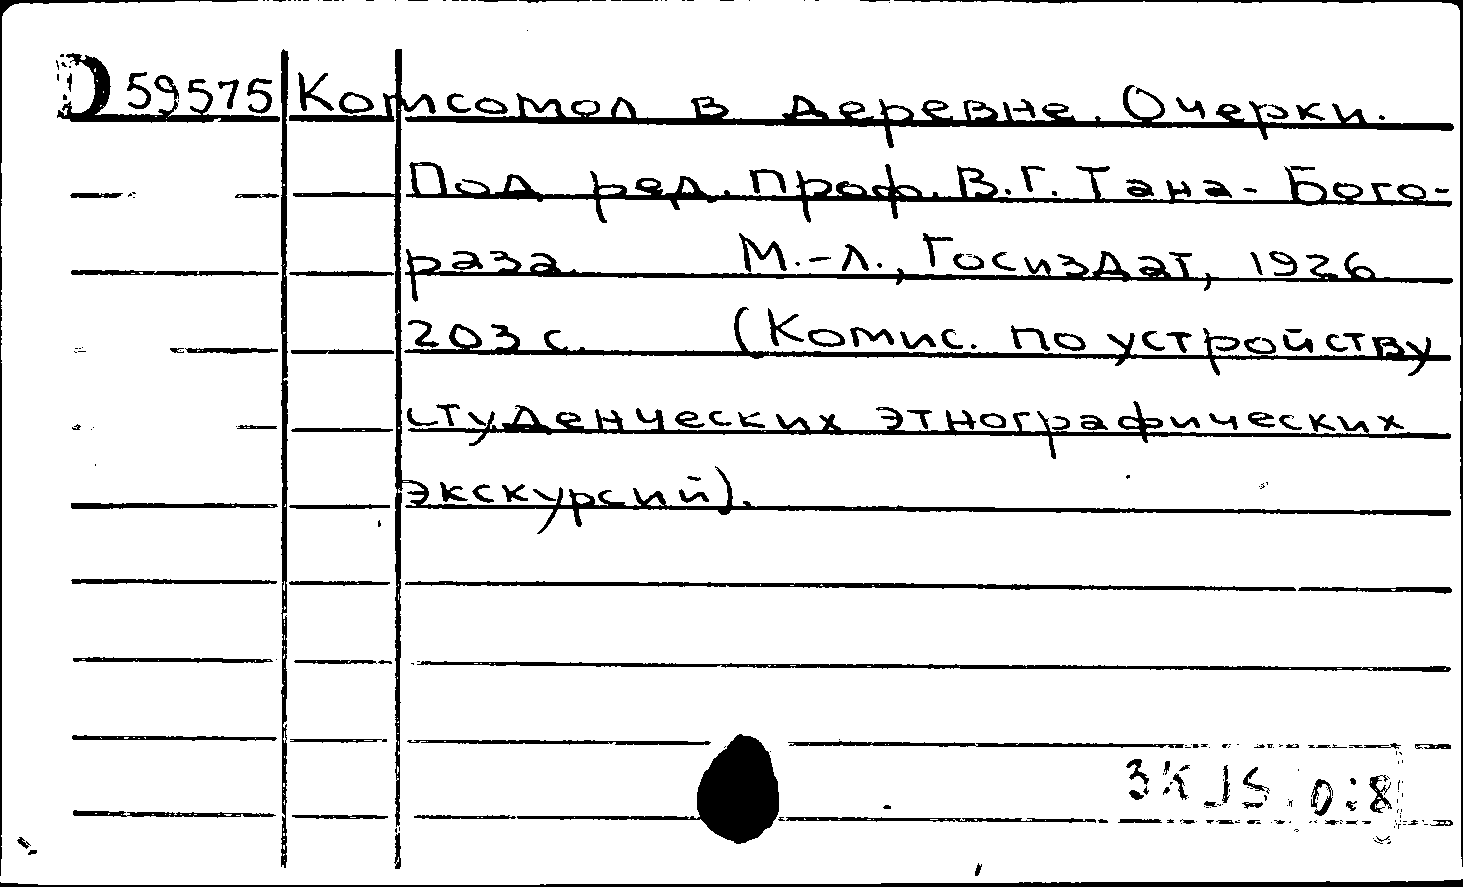 D 59575 Комсомол в деревне. Очерки.
Под ред. проф. В.Г. Тана-Бого-
раза. М.-Л., Госиздат, 1926
203 с. (Комис. по устройству
студенческих этнографических
экскурсий).